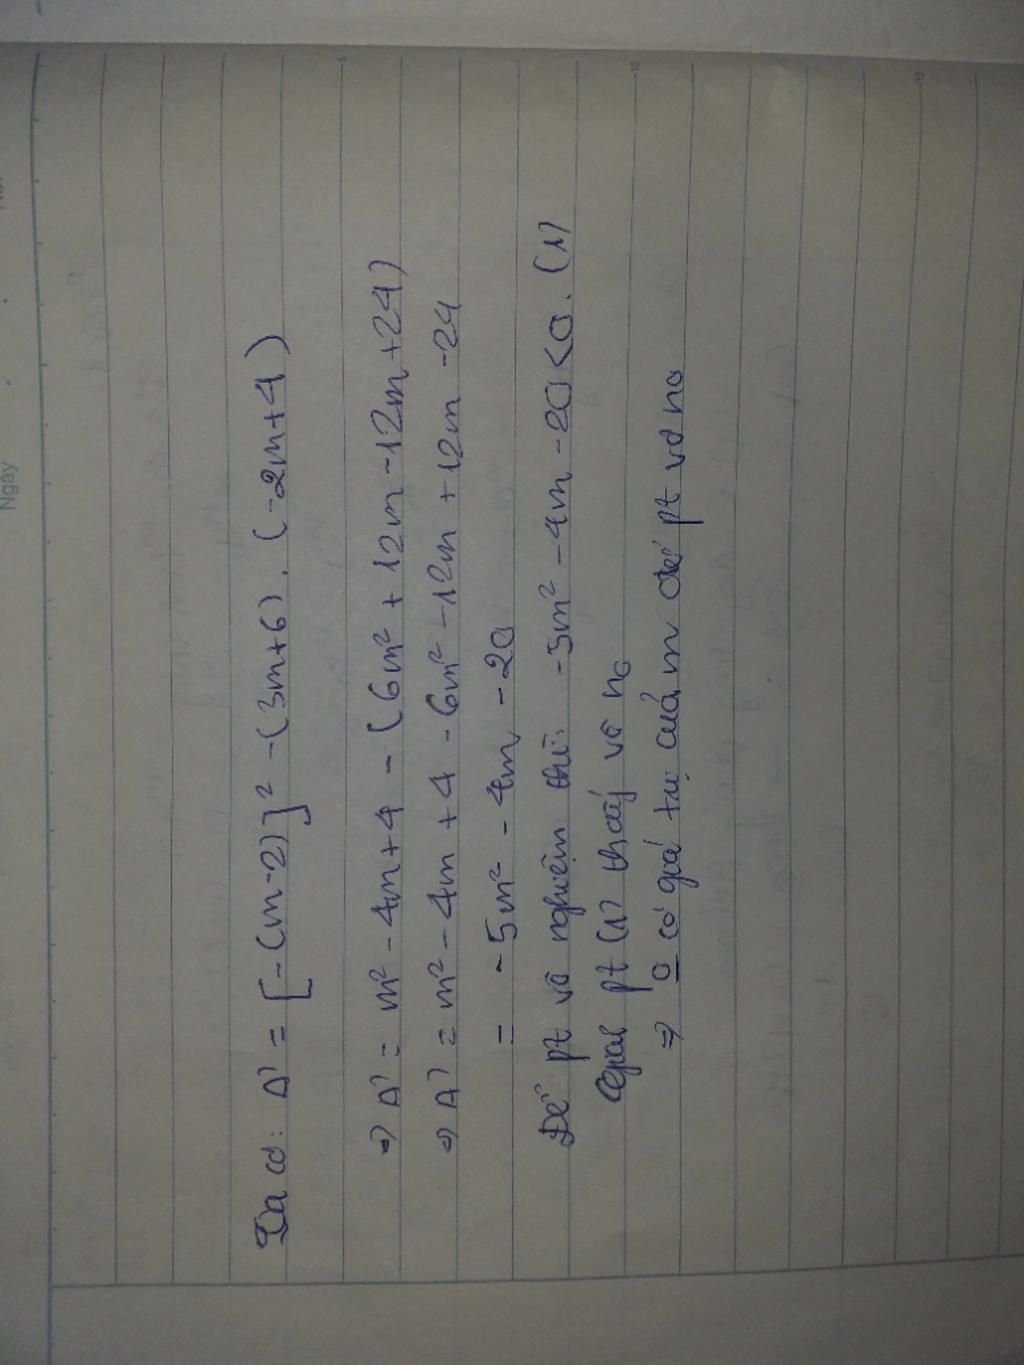 Ngày
No.
5
10
15
Ta có: Δ' = [-(m-2)]² - (3m+6). (-2m+4)
⇒ Δ' = m² - 4m+4 - (6m² + 12m - 12m+24)
⇒ Δ' = m² - 4m + 4 - 6m² - 12m + 12m - 24
= -5m² - 4m - 20
Để pt vô nghiệm thì: -5m² - 4m - 20 < 0. (1)
pt (1) thấy vô no
⇒ 0 có giá trị của m để pt vô no